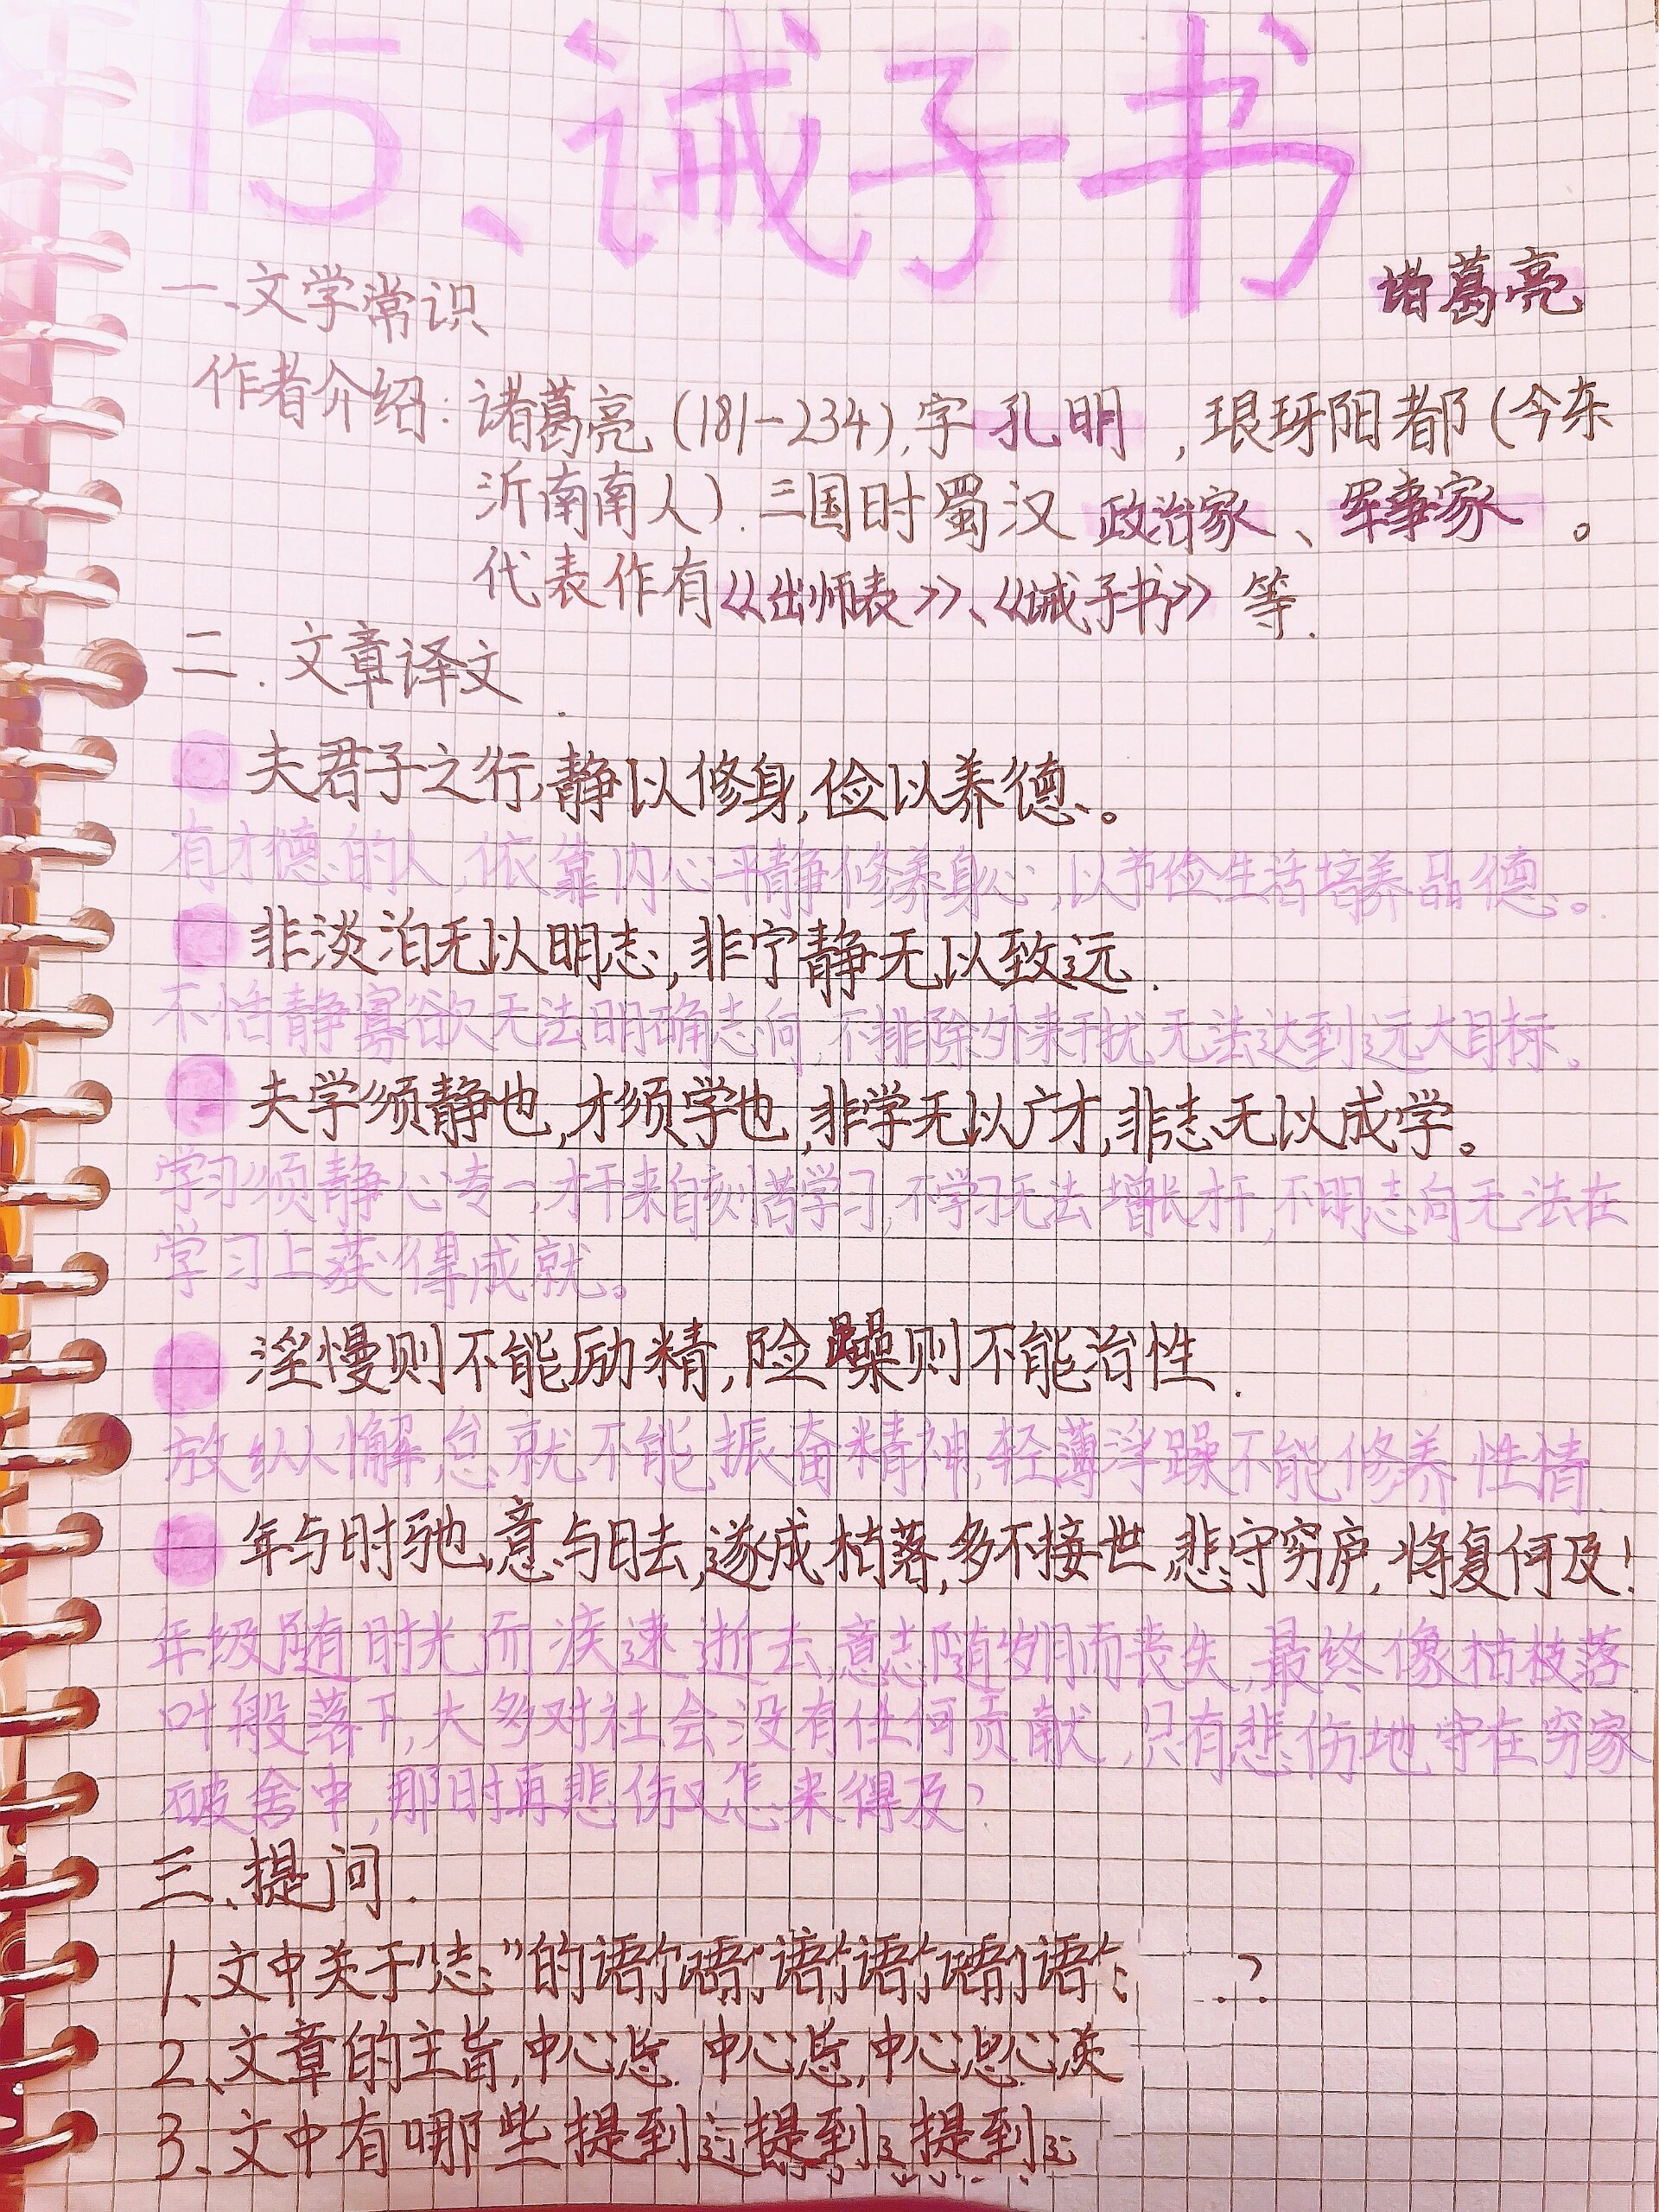 15、诫子书
诸葛亮
一、文学常识
作者介绍：诸葛亮(181-234),字 孔明 ,琅玡阳都(今东
沂南南人).三国时蜀汉 政治家、军事家 。
代表作有《出师表》、《诫子书》等.
二.文章译文
夫君子之行,静以修身,俭以养德。
有才德的人,依靠内心平静修养身心,以节俭生活培养品德。
非淡泊无以明志,非宁静无以致远.
不恬静寡欲无法明确志向,不排除外来干扰无法达到远大目标。
夫学须静也,才须学也,非学无以广才,非志无以成学。
学习须静心专一,才干来自刻苦学习,不学习无法增长才干,不明志向无法在
学习上获得成就。
淫慢则不能励精,险躁则不能治性.
放纵懈怠就不能振奋精神,轻薄浮躁不能修养性情.
年与时驰,意与日去,遂成枯落,多不接世,悲守穷庐,将复何及!
年级随时光而疾速逝去,意志随岁月而丧失,最终像枯枝落
叶般落下,大多对社会没有任何贡献,只有悲伤地守在穷家
破舍中,那时再悲伤又怎来得及?
三、提问.
1、文中关于“志”的语
2、文章的主旨,中心
3、文中有哪些提到